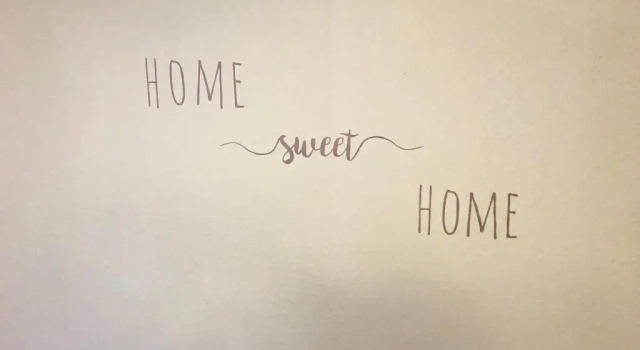 HOME
sweet
HOME